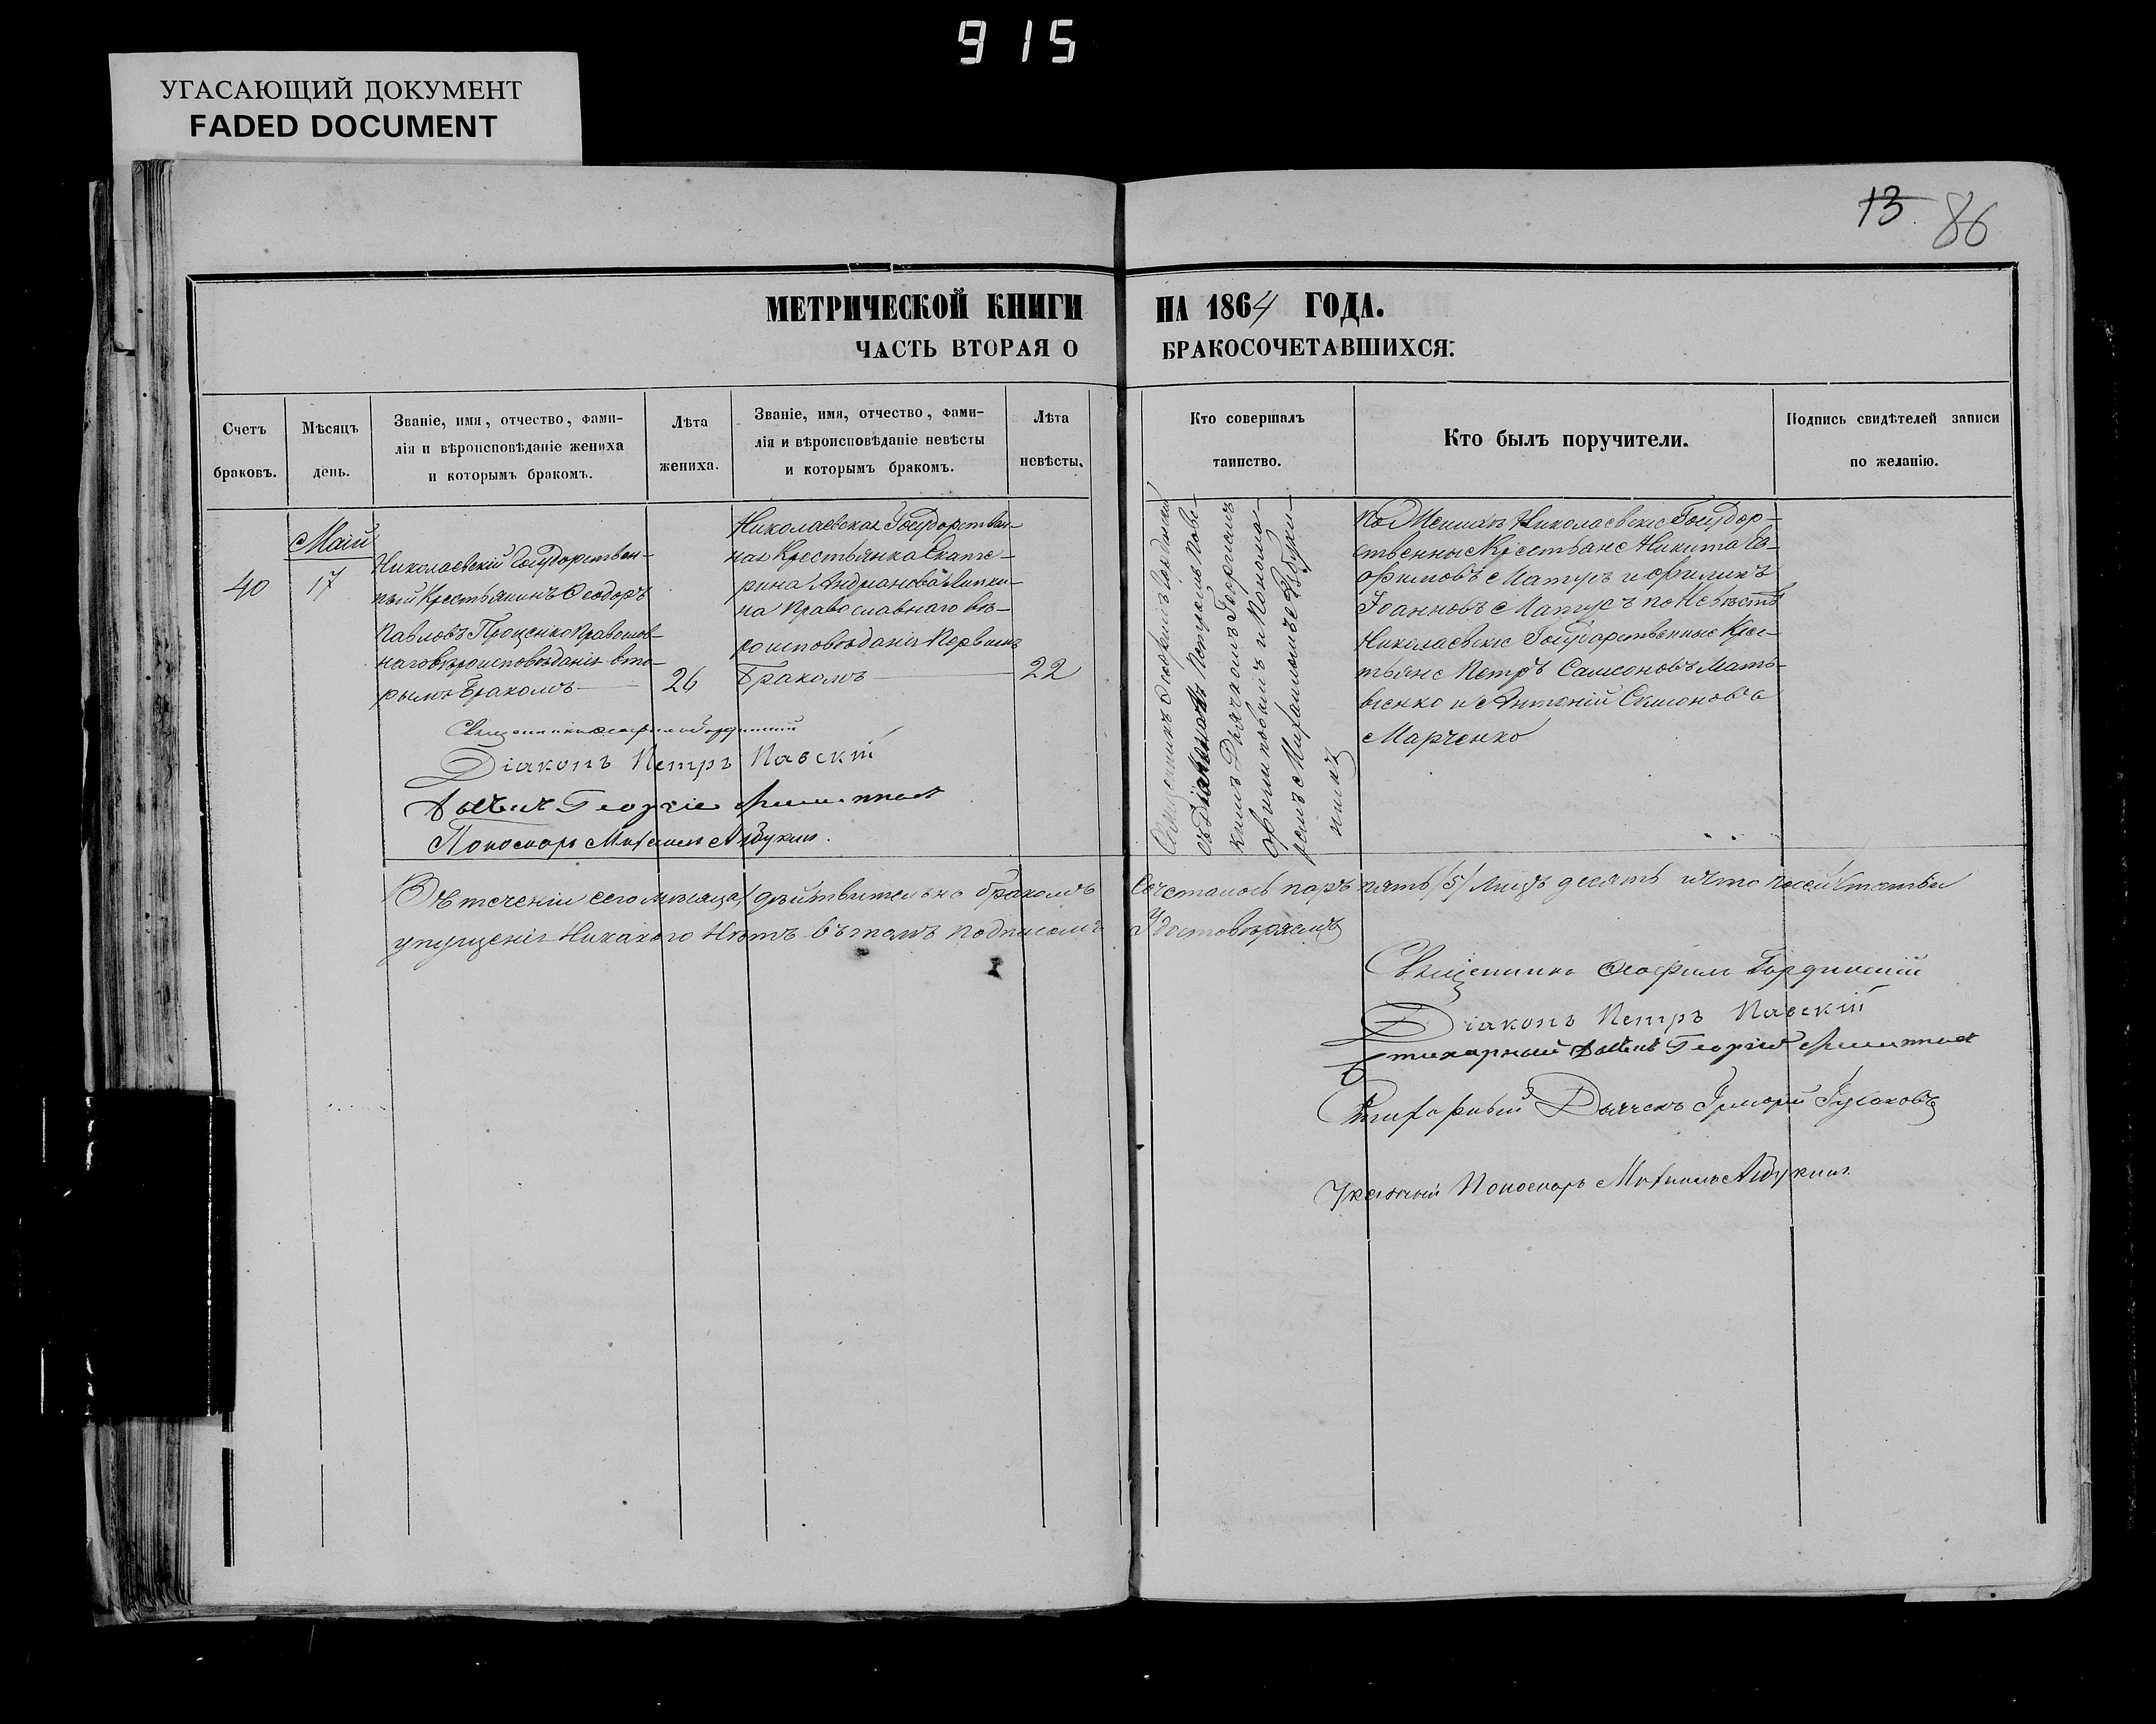 915
УГАСАЮЩИЙ ДОКУМЕНТ
FADED DOCUMENT
13 86
МЕТРИЧЕСКОЙ КНИГИ НА 1864 ГОДА.
ЧАСТЬ ВТОРАЯ О БРАКОСОЧЕТАВШИХСЯ:
Счетъ
браковъ.
Мѣсяцъ
день.
Званіе, имя, отчество, фами-
лія и вѣроисповѣданіе жениха
и которымъ бракомъ.
Лѣта
жениха.
Званіе, имя, отчество, фами-
лія и вѣроисповѣданіе невѣсты
и которымъ бракомъ.
Лѣта
невѣсты.
Кто совершалъ
таинство.
Кто былъ поручители.
Подпись свидѣтелей записи
по желанію.
40
Май
17
Николаевскій Государствен-
ный Крестьянинъ Ѳеодоръ
Павловъ Проценко Православ-
наго вѣроисповѣданія вто-
рымъ Бракомъ
26
Николаевская Государствен-
ная Крестьянка Екате-
рина Андріанова
на Православнаго вѣ-
роисповѣданія Первымъ
Бракомъ
22
Священникъ
съ Діакономъ Петромъ Павс-
кимъ Дьячкомъ Георгіемъ
и Понома-
ремъ Михаиломъ Азбуки-
нымъ
По Женихѣ Николаевскіе Государ-
ственные Крестьяне Никита
Матусъ и Филипъ
Іоанновъ Матусъ по Невѣстѣ
Николаевскіе Государственные Крес-
тьяне Петръ Самсоновъ Мать-
вѣенко и Антоній Симоновъ
Марченко
Священникъ
Діаконъ Петръ Павскій
Дьячекъ Георгій
Пономарь Михаилъ Азбукинъ.
Въ теченіи сего мѣсяца, дѣйствительно бракомъ Сочеталось паръ пять /5/ лицъ десять и что по сей статьи
упущенія Никакого Нѣтъ въ томъ подписомъ Удостовѣряемъ
Священникъ Ѳеофилъ Гординскій
Діаконъ Петръ Павскій
Стихарный Дьячекъ Георгій
Стихарный Дьячекъ Григорій
Указный Пономарь Михаилъ Азбукинъ.